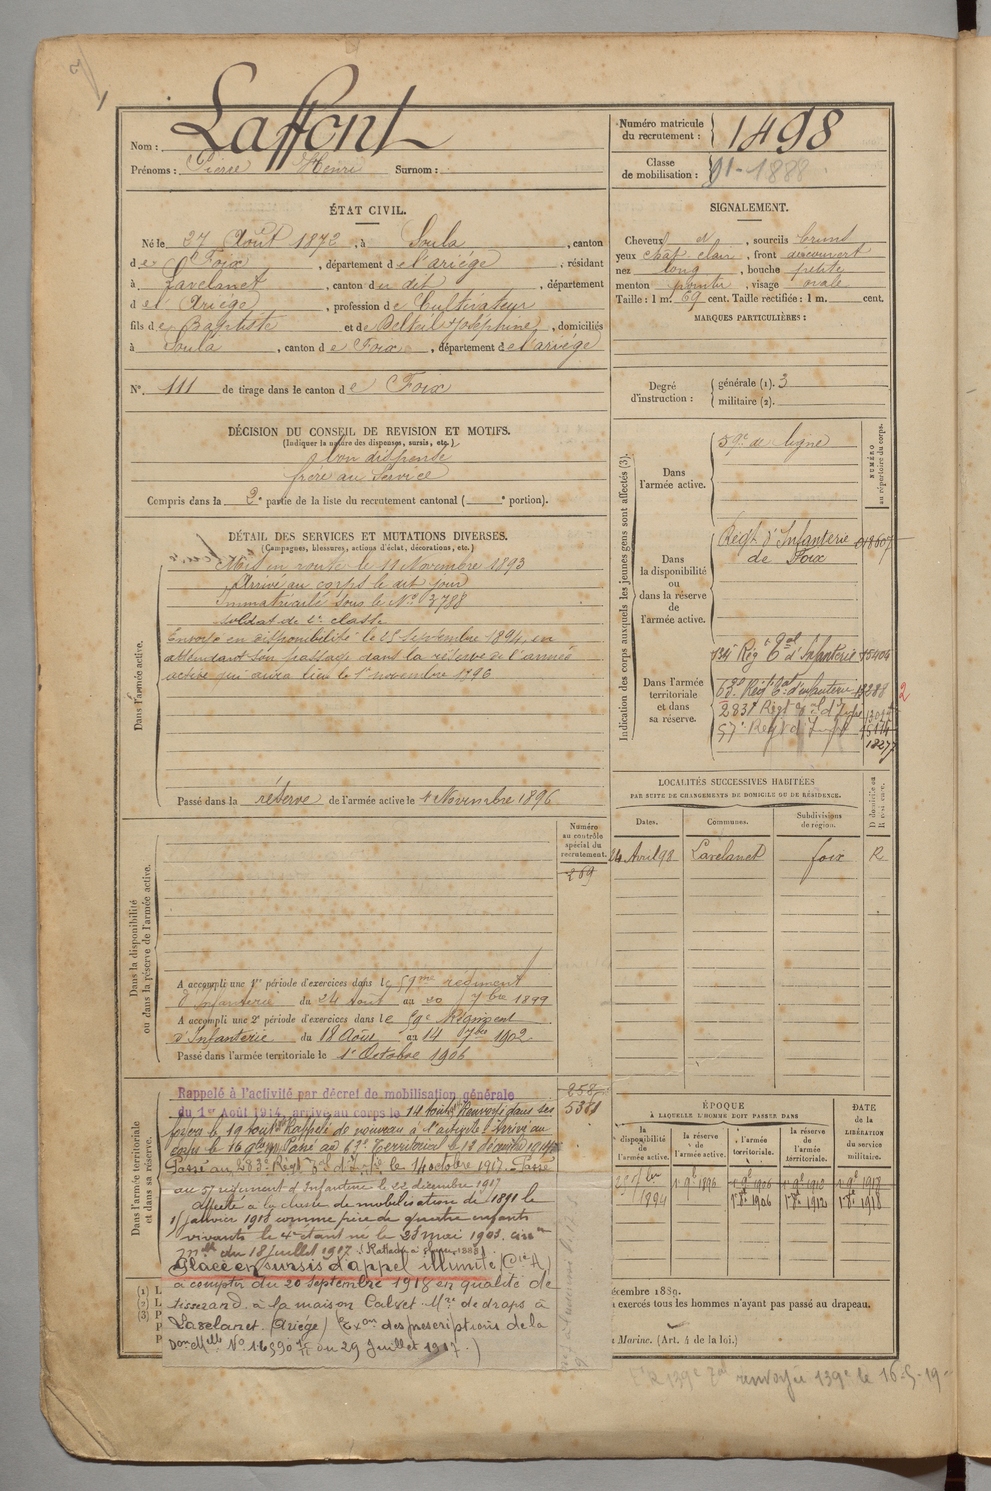 Laffont
Nom :
Prénoms : Pierre Henri Surnom :
Numéro matricule du recrutement : 1498
Classe de mobilisation : 91 - 1888
ÉTAT CIVIL.
Né le 27 Août 1872, à Soula, canton
de Foix, département de l'ariége, résidant
à Lavelanet, canton du dit, département
de l'Ariége, profession de Cultivateur
fils de Baptiste et de Delteil Joséphine, domiciliés
à Soula, canton de Foix, département de l'ariége
N° 111 de tirage dans le canton de Foix
SIGNALEMENT.
Cheveux d, sourcils bruns
yeux chat. clair, front découvert
nez long, bouche petite
menton pointu, visage ovale
Taille : 1 m. 69 cent. Taille rectifiée : 1 m. cent.
MARQUES PARTICULIÈRES :
Degré d'instruction : générale (1). 3
militaire (2).
DÉCISION DU CONSEIL DE REVISION ET MOTIFS.
(Indiquer la nature des dispenses, sursis, etc.)
bon dispensé
frère au service
Compris dans la 2e partie de la liste du recrutement cantonal ( e portion).
DÉTAIL DES SERVICES ET MUTATIONS DIVERSES.
(Campagnes, blessures, actions d'éclat, décorations, etc.)
Dans l'armée active.
Mis en route le 11 Novembre 1893
Arrivé au corps le dit jour
Immatriculé sous le N° 3788
soldat de 2e classe
Envoyé en disponibilité le 25 Septembre 1894, en
attendant son passage dans la réserve de l'armée
active qui aura lieu le 1er novembre 1896
Passé dans la réserve de l'armée active le 1 Novembre 1896
Indication des corps auxquels les jeunes gens sont affectés (3).
NUMÉRO au répertoire du corps.
Dans l'armée active.
59e de ligne
Dans la disponibilité ou dans la réserve de l'armée active.
Régt d'Infanterie
de Foix
Dans l'armée territoriale et dans sa réserve.
134 Rég t al d'Infanterie 15404
63e Régt tal d'infanterie 2
283e Régt
57e Régt d'Inf
18277
LOCALITÉS SUCCESSIVES HABITÉES
PAR SUITE DE CHANGEMENTS DE DOMICILE OU DE RÉSIDENCE.
Dates. Communes. Subdivisions de région. D domicile ou R résidence.
24 Avril 98 Lavelanet foix R
Numéro au contrôle spécial du recrutement.
269
Dans la disponibilité ou dans la réserve de l'armée active.
A accompli une 1re période d'exercices dans le 59me régiment
d'Infanterie du 24 Aout au 20 7bre 1899
A accompli une 2e période d'exercices dans le 59e Régiment
d'Infanterie du 18 Août au 14 7bre 1902
Passé dans l'armée territoriale le 1er Octobre 1906
Dans l'armée territoriale et dans sa réserve.
258
5381
Rappelé à l'activité par décret de mobilisation générale
du 1er Août 1914, arrivé au corps le 14 Aout Renvoyé dans ses
foyers le 19 aout Rappelé de nouveau à l'activité Arrivé au
corps le 16 Passé au 63e Territorial le 18 décembre 1914
Passé au 283e Régt d'Infie le 14 octobre 1917. Passé
au 57 régiment d'Infanterie le 22 décembre 1917
Affecté à la classe de mobilisation de 1891 le
1er janvier 1918 comme père de quatre enfants
vivants le 4e étant né le 28 mai 1903. Circ
mlle du 18 juillet 1917
Placé en sursis d'appel illimité
à compter du 20 septembre 1918 en qualité de
tisserand à la maison Calvet Mre de draps à
Lavelanet (Ariége) (Exon des prescriptions de la
Don Mlle N° 16590 du 29 Juillet 1917.)
ÉPOQUE
À LAQUELLE L'HOMME DOIT PASSER DANS
la disponibilité de l'armée active. la réserve de l'armée active. l'armée territoriale. la réserve de l'armée territoriale.
DATE DE LA LIBÉRATION du service militaire.
1894 1896 1906 1912 1918
écembre 1889.
exercés tous les hommes n'ayant pas passé au drapeau.
Marine. (Art. 4 de la loi.)
139e renvoyée 139e le 16-5-19